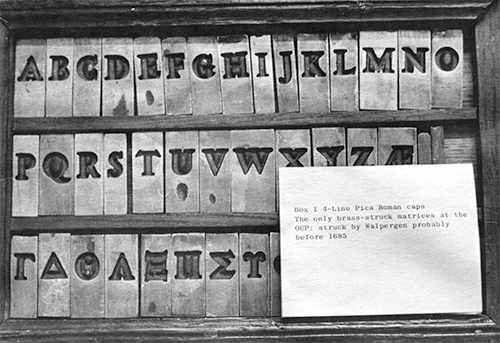 ABCDEFGHIJKLMNO
PQRSTUVWXYZÆ
ΓΔΘΛΞΠΣΥ
Box 1 4-Line Pica Roman caps
The only brass-struck matrices at the
OUP: struck by Walpergen probably
before 1685